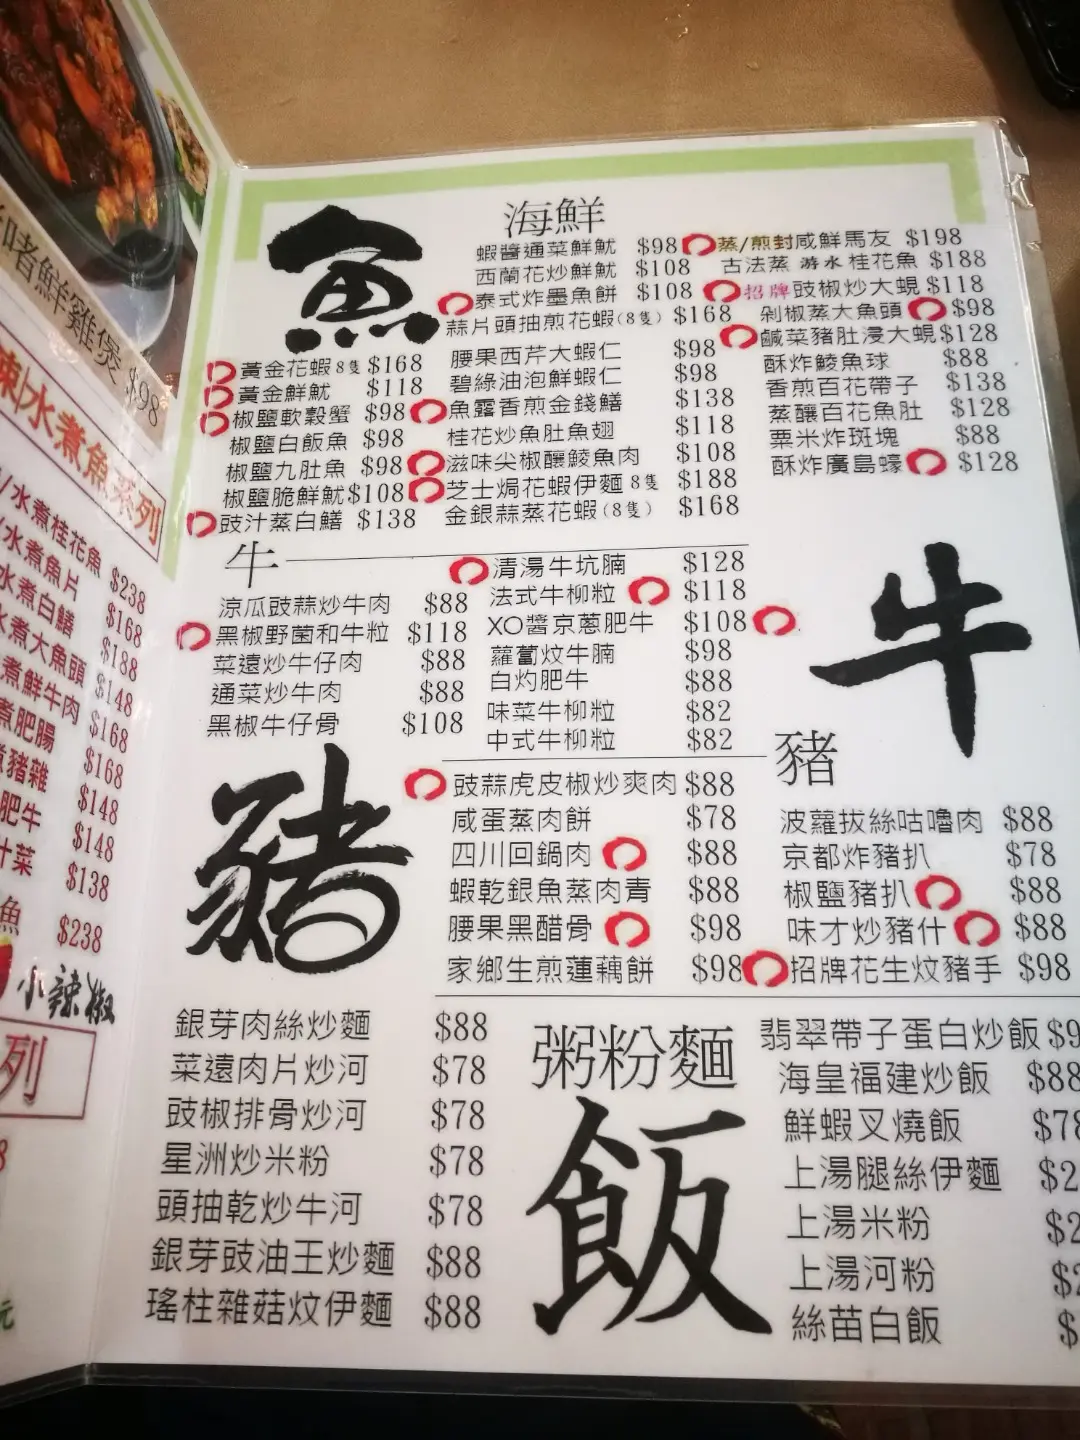 啫啫鮮雞煲 $98
辣水煮魚系列
水煮桂花魚 $238
水煮魚片 $168
水煮白鱔 $188
水煮大魚頭 $148
煮鮮牛肉 $168
煮肥腸 $168
豬雜 $148
肥牛 $148
什菜 $138
魚 $238
小辣椒
列
元
魚
海鮮
蝦醬通菜鮮魷 $98
西蘭花炒鮮魷 $108
泰式炸墨魚餅 $108
蒜片頭抽煎花蝦(8隻) $168
蒸/煎封咸鮮馬友 $198
古法蒸 游水 桂花魚 $188
招牌豉椒炒大蜆 $118
剁椒蒸大魚頭 $98
鹹菜豬肚浸大蜆 $128
酥炸鯪魚球 $88
香煎百花帶子 $138
蒸釀百花魚肚 $128
粟米炸斑塊 $88
酥炸廣島蠔 $128
黃金花蝦8隻 $168
黃金鮮魷 $118
椒鹽軟殼蟹 $98
椒鹽白飯魚 $98
椒鹽九肚魚 $98
椒鹽脆鮮魷 $108
豉汁蒸白鱔 $138
腰果西芹大蝦仁 $98
碧綠油泡鮮蝦仁 $98
魚露香煎金錢鱔 $138
桂花炒魚肚魚翅 $118
滋味尖椒釀鯪魚肉 $108
芝士焗花蝦伊麵 8隻 $188
金銀蒜蒸花蝦(8隻) $168
牛
涼瓜豉蒜炒牛肉 $88
黑椒野菌和牛粒 $118
菜遠炒牛仔肉 $88
通菜炒牛肉 $88
黑椒牛仔骨 $108
清湯牛坑腩 $128
法式牛柳粒 $118
XO醬京蔥肥牛 $108
蘿蔔炆牛腩 $98
白灼肥牛 $88
味菜牛柳粒 $82
中式牛柳粒 $82
牛
豬
豬
豉蒜虎皮椒炒爽肉 $88
咸蛋蒸肉餅 $78
四川回鍋肉 $88
蝦乾銀魚蒸肉青 $88
腰果黑醋骨 $98
家鄉生煎蓮藕餅 $98
波蘿拔絲咕嚕肉 $88
京都炸豬扒 $78
椒鹽豬扒 $88
味才炒豬什 $88
招牌花生炆豬手 $98
銀芽肉絲炒麵 $88
菜遠肉片炒河 $78
豉椒排骨炒河 $78
星洲炒米粉 $78
頭抽乾炒牛河 $78
銀芽豉油王炒麵 $88
瑤柱雜菇炆伊麵 $88
粥粉麵
飯
翡翠帶子蛋白炒飯 $9
海皇福建炒飯 $88
鮮蝦叉燒飯 $78
上湯腿絲伊麵 $2
上湯米粉 $2
上湯河粉 $2
絲苗白飯 $